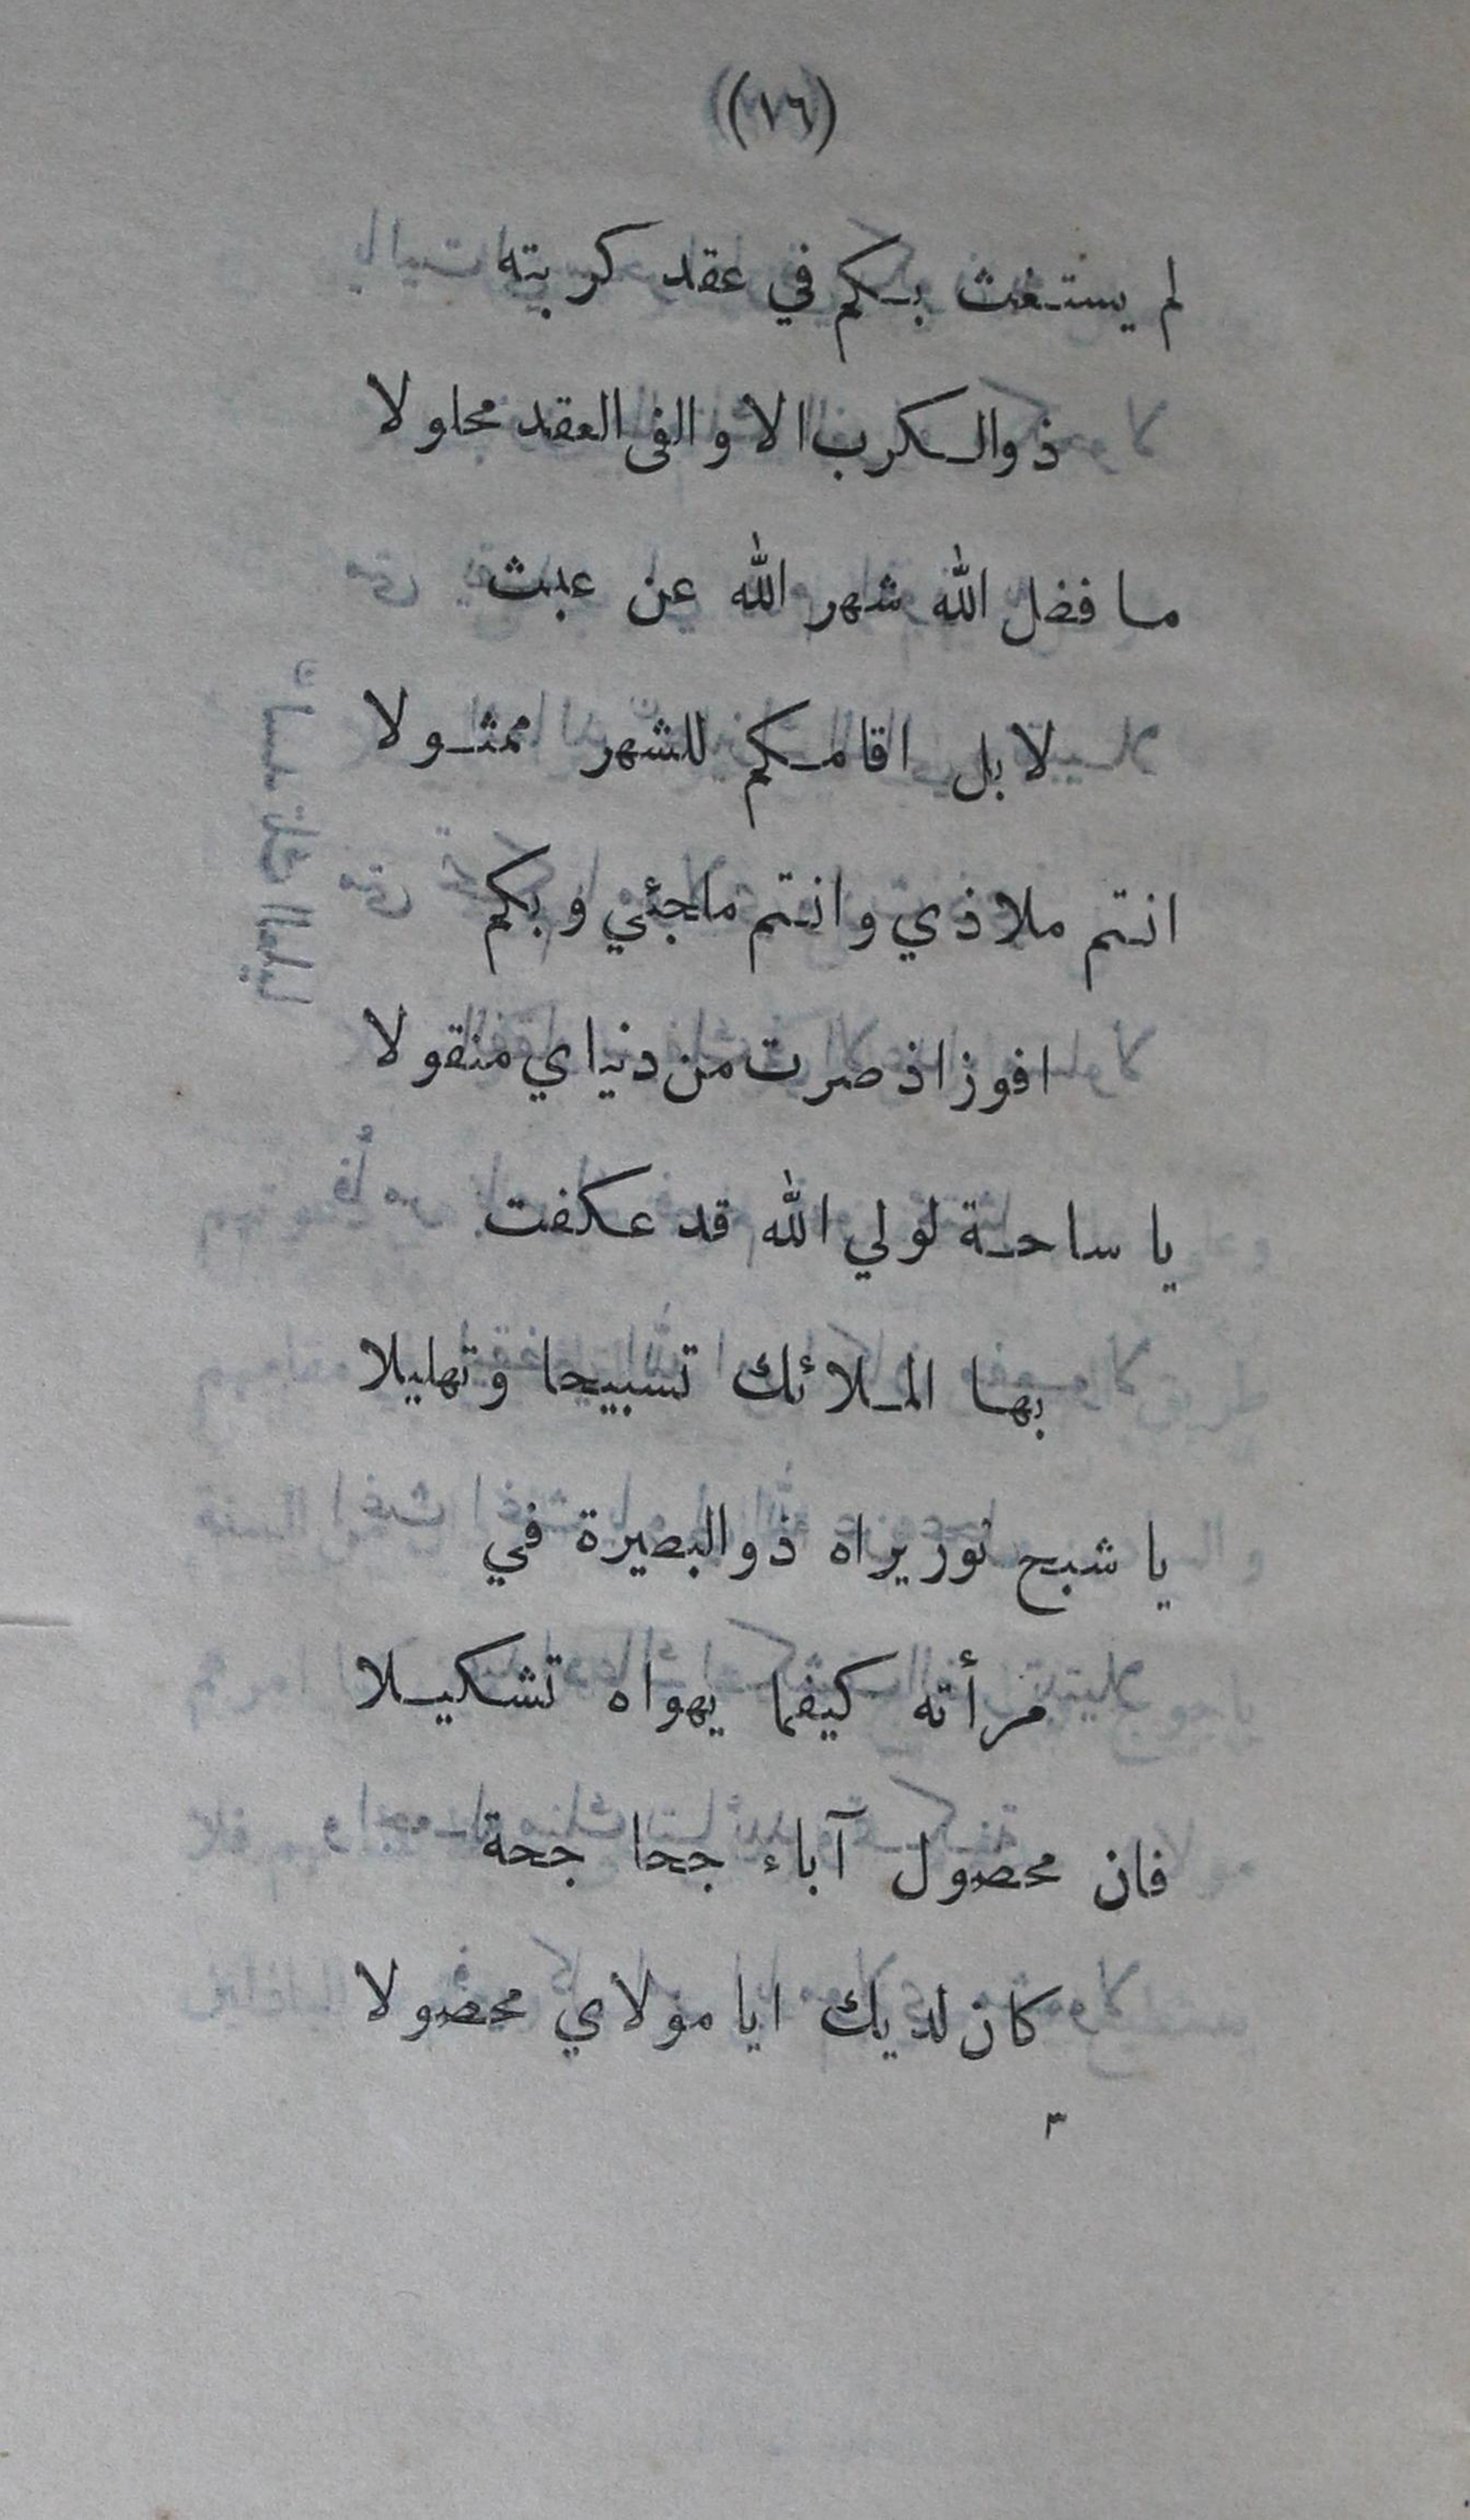 (١٦)
لم يستغث بكم في عقد كربته
ذو الكرب الا والفى العقد محلولا
ما فضل الله شهر الله عن عبث
لا بل اقامكم للشهر ممثولا
انتم ملاذي وانتم ملجئي وبكم
افوز اذ صرت من دنياي منقولا
يا ساحة لولي الله قد عكفت
بها الملائك تسبيحا وتهليلا
يا شبح نور يراه ذو البصيرة في
مرأته كيفما يهواه تشكيلا
فان محصول آباء جحا جحة
كان لديك ايا مولاي محصولا
٣